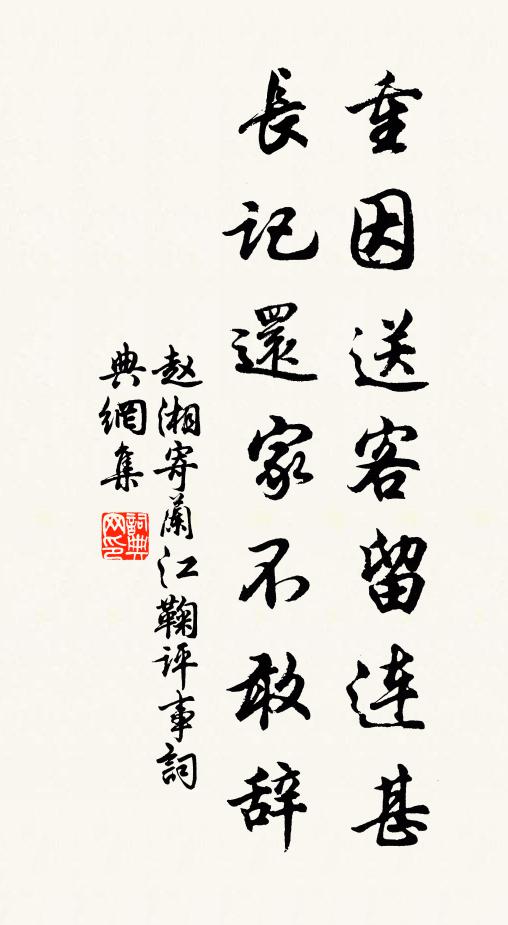 重因送客留连甚
長记還家不敢辞
赵湘寄蘭江鞠评事詞
典網集
詞典
网印